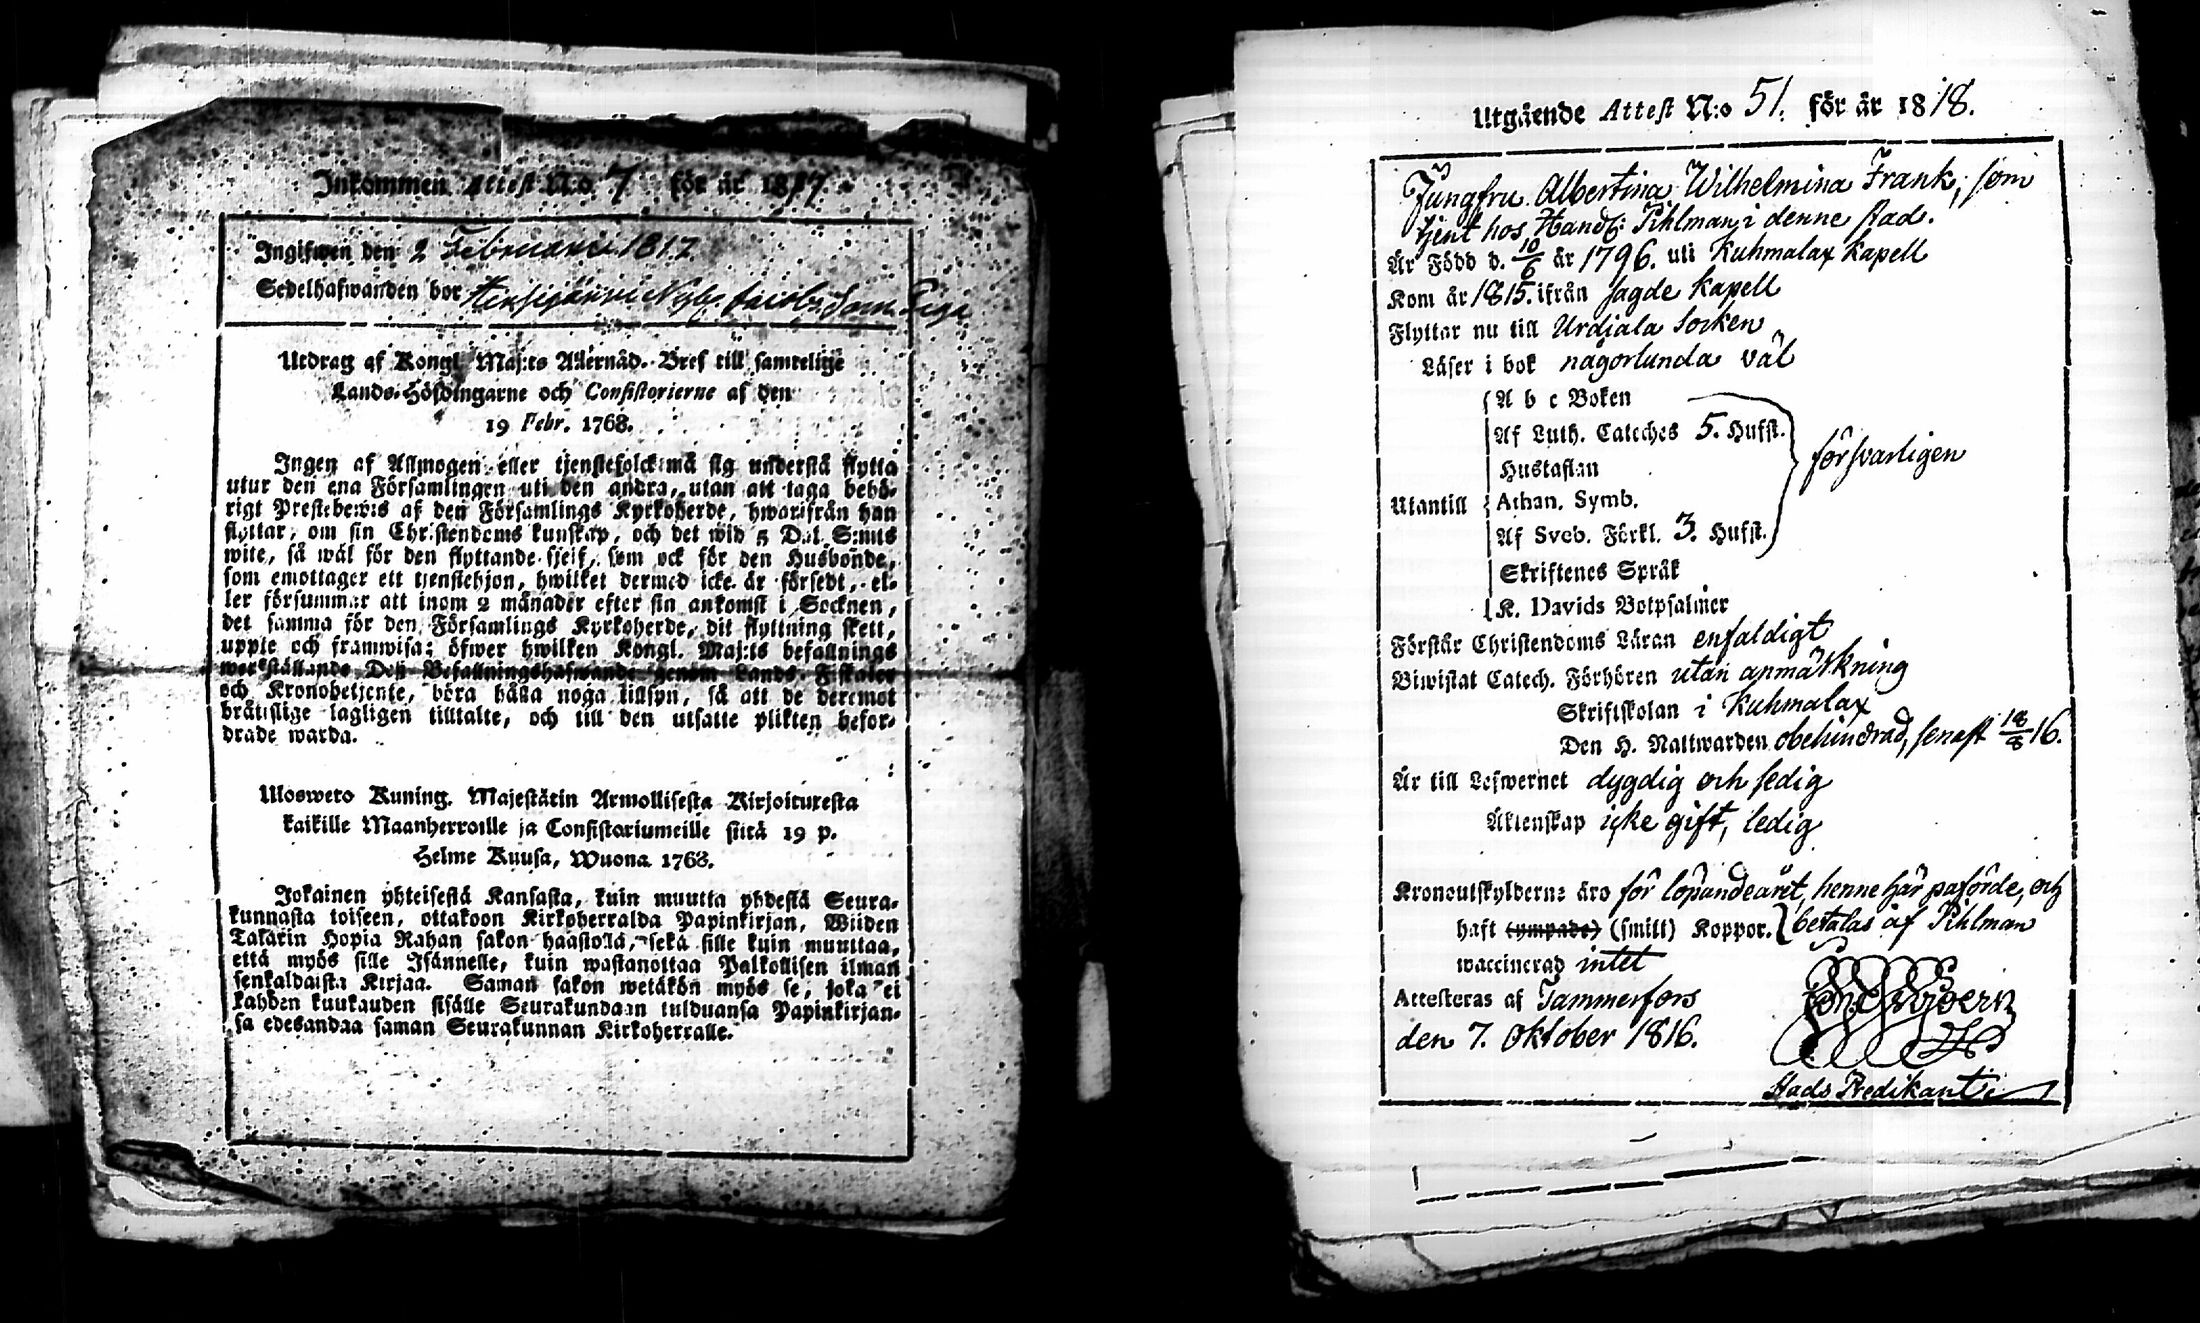 Inkommen Attest N:o 7 för år 1817
Ingifwen den 2 Februarii 1817
Sedelhafwanden bor
Utdrag af Kongl Maj:ts Allernåd. Bref till samtelige
Lands-Höfdingarne och Consistorierne af den
19 Febr. 1768.
Ingen af Allmogen eller tjenstefolck må sig understå flytta
utur den ena Församlingen uti den andra, utan att taga behö-
rigt Prestebewis af den Församlings Kyrkoherde, hwarifrån han
flyttar, om sin Christendoms kunskap, och det wid 5 Dal. S:mts
wite, så wäl för den flyttande sjelf, som ock för den Husbonde,
som emottager ett tjenstehjon, hwilket dermed icke är försedt, el-
ler försummar att inom 2 månader efter sin ankomst i Socknen,
det samma för den Församlings Kyrkoherde, dit flyttning skett,
uppte och framwisa; öfwer hwilken Kongl. Maj:ts befallnings
werkställande Deß Befallningshafwande genom Lands Fiskaler
och Kronobetjente, böra hålla noga tillsyn, så att de deremot
brättslige lagligen tilltalte, och till den utsatte plikten befor-
drade warda.
Ulosweto Kuning. Majestätin Armollisesta Kirjoituresta
kaikille Maanherroille ja Consistoriumeille siitä 19 p.
Helme Kuusa, Wuona 1768.
Jokainen yhteisestä Kansasta, kuin muutta yhdestä Seura-
kunnasta toiseen, ottakoon Kirkoherralda Papinkirjan, Wiiden
Talarin Hopia Rahan sakon haastolla, sekä sille kuin muuttaa,
että myös sille Isännelle, kuin wastanottaa Palkollisen ilman
senkaldaista Kirjaa. Saman sakon wetäkön myös se, joka ei
kahden kuukauden sisälle Seurakundaan tulduansa Papinkirjan-
sa edesandaa saman Seurakunnan Kirkoherralle.
Utgående Attest N:o 51. för år 1818.
Jungfru Albertina Wilhelmina Frank, som
tjent hos Handl: Pihlman i denne stad.
Är Född d. 10/6 år 1796. uti Kuhmalax Kapell
Kom år 1815. ifrån sagde Kapell
Flyttar nu till Urdiala Socken
Läser i bok någorlunda väl
A b c Boken
Af Luth. Cateches 5. Hufst.
Hustaflan
försvarligen
Utantill Athan. Symb.
Af Sveb. Förkl. 3. Hufst.
Skriftenes Språk
K. Davids Botpsalmer
Förstår Christendoms Läran enfaldigt
Biwistat Catech. Förhören utan anmärkning
Skriftskolan i Kuhmalax
Den H. Nattwarden obehindrad, senast 18/8 16.
Är till Lefwernet dygdig och sedig
Äktenskap icke gift, ledig
Kronoutskylderne äro för löpandeåret, henne här påförde, och
haft (ympade) (smitt) Koppor. betalas af Pihlman
waccinerad intet
Attesteras af Tammerfors
den 7. Oktober 1816.
Stads Predikant